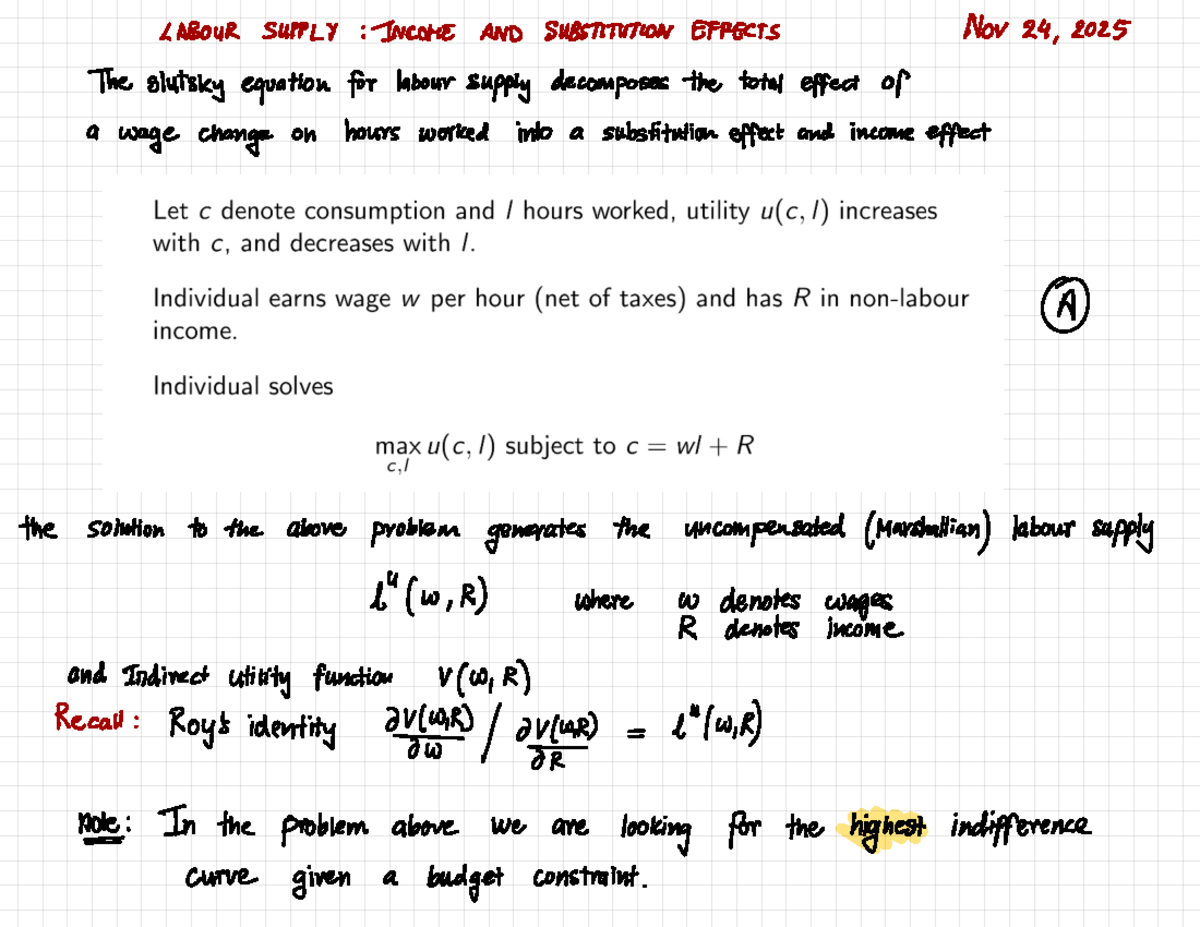 LABOUR SUPPLY : INCOME AND SUBSTITUTION EFFECTS Nov 24, 2025
The slutsky equation for labour supply decomposes the total effect of
a wage change on hours worked into a substitution effect and income effect
Let c denote consumption and l hours worked, utility u(c, l) increases
with c, and decreases with l.
Individual earns wage w per hour (net of taxes) and has R in non-labour
income.
A
Individual solves
max u(c, l) subject to c = wl + R
c,l
the solution to the above problem generates the uncompensated (Marshallian) labour supply
l^u (w, R) where w denotes wages
R denotes income
and Indirect utility function V(w, R)
Recall: Roy's identity ∂V(w,R)/∂w / ∂V(w,R)/∂R = l^u (w,R)
Note: In the problem above we are looking for the highest indifference
curve given a budget constraint.